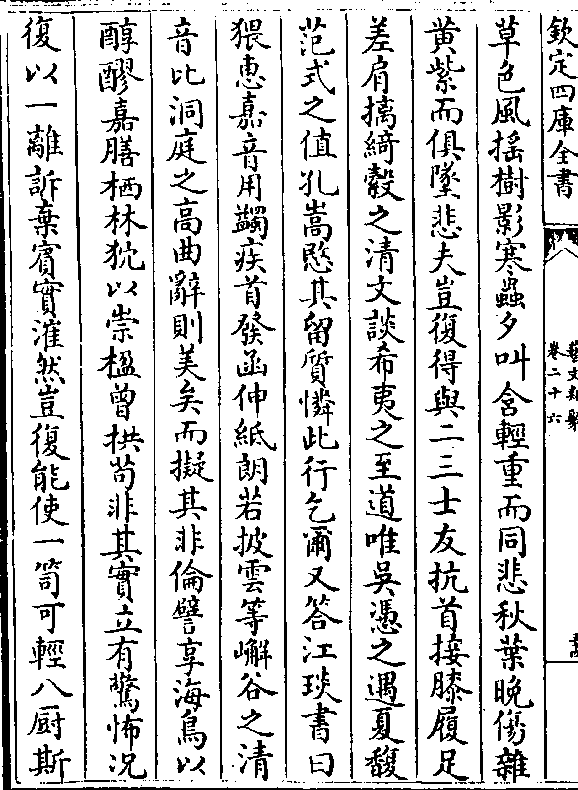 欽定四庫全書
藝文類聚
卷二十六
草色風揺樹影寒蟲夕叫含輕重而同悲秋葉晚傷雜
黄紫而俱墜悲夫豈復得與二三士友抗首接膝履足
差肩摛綺縠之清文談希夷之至道唯吳憑之遇夏馥
范式之值孔嵩愍其留質憐此行乞爾又答江琰書曰
猥惠嘉音用蠲疾首發函伸紙朗若披雲等嶰谷之清
音比洞庭之高曲辭則美矣而擬其非倫譬享海鳥以
醇醪嘉膳栖林狖以崇楹曾拱茍非其實立有驚怖况
復以一離訴棄賓實漼然豈復能使一笥可輕八厨斯